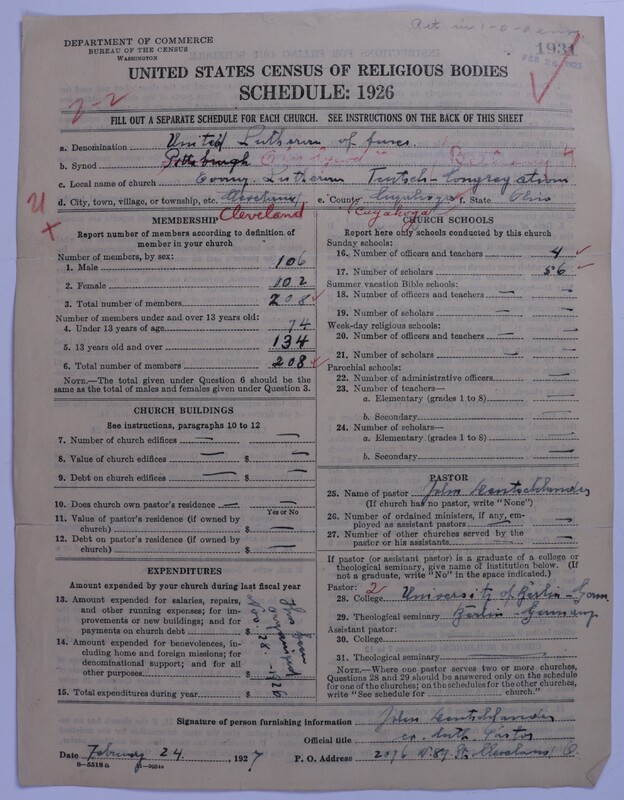 1931
DEPARTMENT OF COMMERCE
BUREAU OF THE CENSUS
WASHINGTON
UNITED STATES CENSUS OF RELIGIOUS BODIES
SCHEDULE: 1926
2-2
FILL OUT A SEPARATE SCHEDULE FOR EACH CHURCH. SEE INSTRUCTIONS ON THE BACK OF THIS SHEET
a. Denomination United Lutheran of
b. Synod Pittsburgh
c. Local name of church Evang. Lutheran Teutsch-Congregation
d. City, town, village, or township, etc. Cleveland e. County Cuyahoga f. State Ohio
Cleveland Cuyahoga
MEMBERSHIP
Report number of members according to definition of
member in your church
Number of members, by sex:
1. Male 106
2. Female 102
3. Total number of members 208
Number of members under and over 13 years old:
4. Under 13 years of age 74
5. 13 years old and over 134
6. Total number of members 208
NOTE.—The total given under Question 6 should be
the same as the total of males and females given under Question 3.
CHURCH BUILDINGS
See instructions, paragraphs 10 to 12
7. Number of church edifices —
8. Value of church edifices — $ —
9. Debt on church edifices — $ —
10. Does church own pastor's residence —
Yes or No
11. Value of pastor's residence (if owned by
church) $ —
12. Debt on pastor's residence (if owned by
church) $ —
EXPENDITURES
Amount expended by your church during last fiscal year
13. Amount expended for salaries, repairs,
and other running expenses; for im-
provements or new buildings; and for
payments on church debt $
14. Amount expended for benevolences, in-
cluding home and foreign missions; for
denominational support; and for all
other purposes $
15. Total expenditures during year $
Has been
organized
Nov. 28 - 1926
CHURCH SCHOOLS
Report here only schools conducted by this church
Sunday schools:
16. Number of officers and teachers 4
17. Number of scholars 56
Summer vacation Bible schools:
18. Number of officers and teachers —
19. Number of scholars —
Week-day religious schools:
20. Number of officers and teachers —
21. Number of scholars —
Parochial schools:
22. Number of administrative officers —
23. Number of teachers—
a. Elementary (grades 1 to 8) —
b. Secondary —
24. Number of scholars—
a. Elementary (grades 1 to 8) —
b. Secondary —
PASTOR
25. Name of pastor John
(If church has no pastor, write "None")
26. Number of ordained ministers, if any, em-
ployed as assistant pastors —
27. Number of other churches served by the
pastor or his assistants —
If pastor (or assistant pastor) is a graduate of a college or
theological seminary, give name of institution below. (If
not a graduate, write "No" in the space indicated.)
Pastor: 2
28. College University of Berlin-Germ.
29. Theological seminary Berlin-Germany
Assistant pastor:
30. College
31. Theological seminary
NOTE.—Where one pastor serves two or more churches,
Questions 28 and 29 should be answered only on the schedule
for one of the churches; on the schedules for the other churches,
write "See schedule for church."
Signature of person furnishing information John
Official title ev. luth. Pastor
Date February 24, 1927 P. O. Address 2096 W. 89. St. Cleveland, O.
8-5518a